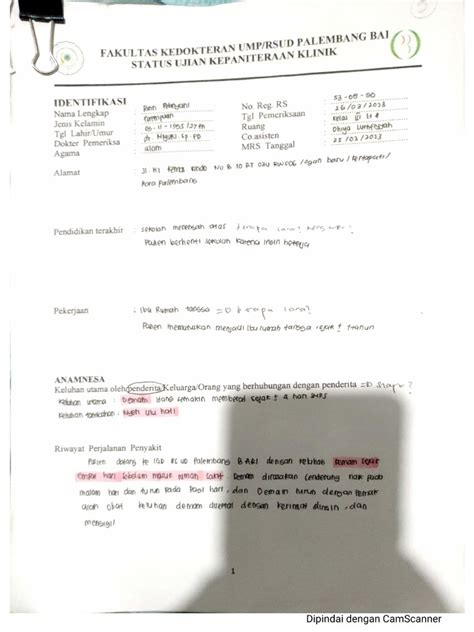 FAKULTAS KEDOKTERAN UMP/RSUD PALEMBANG BAI
STATUS UJIAN KEPANITERAAN KLINIK
IDENTIFIKASI
Nama Lengkap :
Jenis Kelamin :
Tgl Lahir/Umur :
Dokter Pemeriksa :
Agama : Islam
No Reg. RS : 53-05-50
Tgl Pemeriksaan : 26/03/2023
Ruang : Kelas III
Co.asisten :
MRS Tanggal : 25/03/2023
Alamat : Jl. Ki
Kota Palembang
Pendidikan terakhir : sekolah menengah atas
Pasien berhenti sekolah karena ingin bekerja
Pekerjaan : Ibu Rumah tangga =D berapa lama?
Pasien memutuskan menjadi ibu rumah tangga sejak ± 1 tahun
ANAMNESA
Keluhan utama oleh penderita/Keluarga/Orang yang berhubungan dengan penderita =D siapa?
Keluhan utama : Demam yang semakin memberat sejak ± 4 hari SMRS
Keluhan tambahan : Nyeri ulu hati
Riwayat Perjalanan Penyakit
Pasien datang ke IGD RSUD Palembang BARI dengan keluhan demam sejak
empat hari sebelum masuk rumah sakit. Demam dirasakan cenderung naik pada
malam hari dan turun pada pagi hari, dan Demam turun dengan
obat keluhan demam disertai dengan keringat dingin, dan
menggigil
1
Dipindai dengan CamScanner